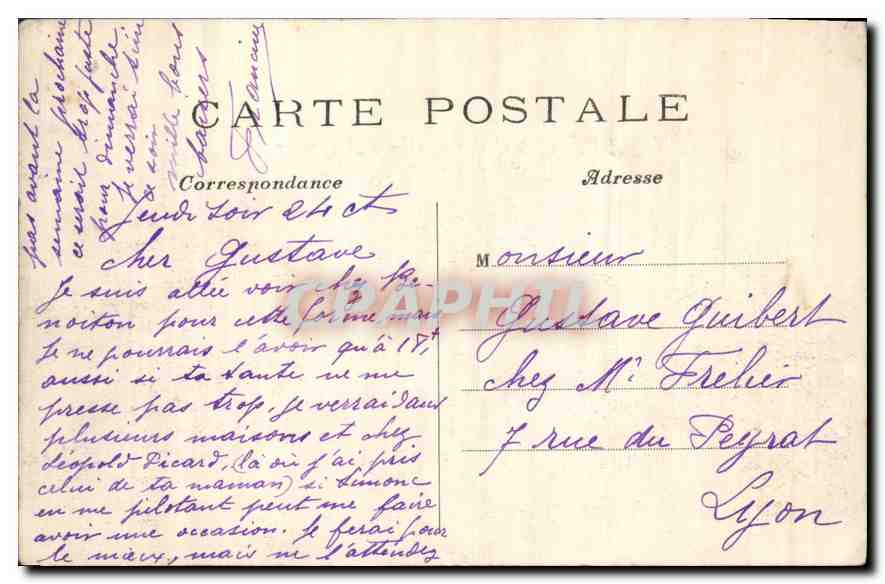 CARTE POSTALE
Correspondance
Adresse
Jeudi soir 24 ct
cher Gustave
Je suis allée voir chez Be-
noiton pour cette forme mais
Je ne pourrais l'avoir qu'à 18f
aussi si ta tante ne me
presse pas trop, je verrai dans
plusieurs maisons et chez
Léopold Picard, (là où j'ai pris
celui de ta maman) si Simone
en me pilotant peut me faire
avoir une occasion. Je ferai pour
le mieux, mais ne l'attendez
pas avant la
semaine prochaine
ce serait trop juste
pour dimanche
Je verrai
ce soir
mille bons
baisers
Monsieur
Gustave Guibert
chez Mr Frélier
7 rue du Peyrat
Lyon
CPAPHIL